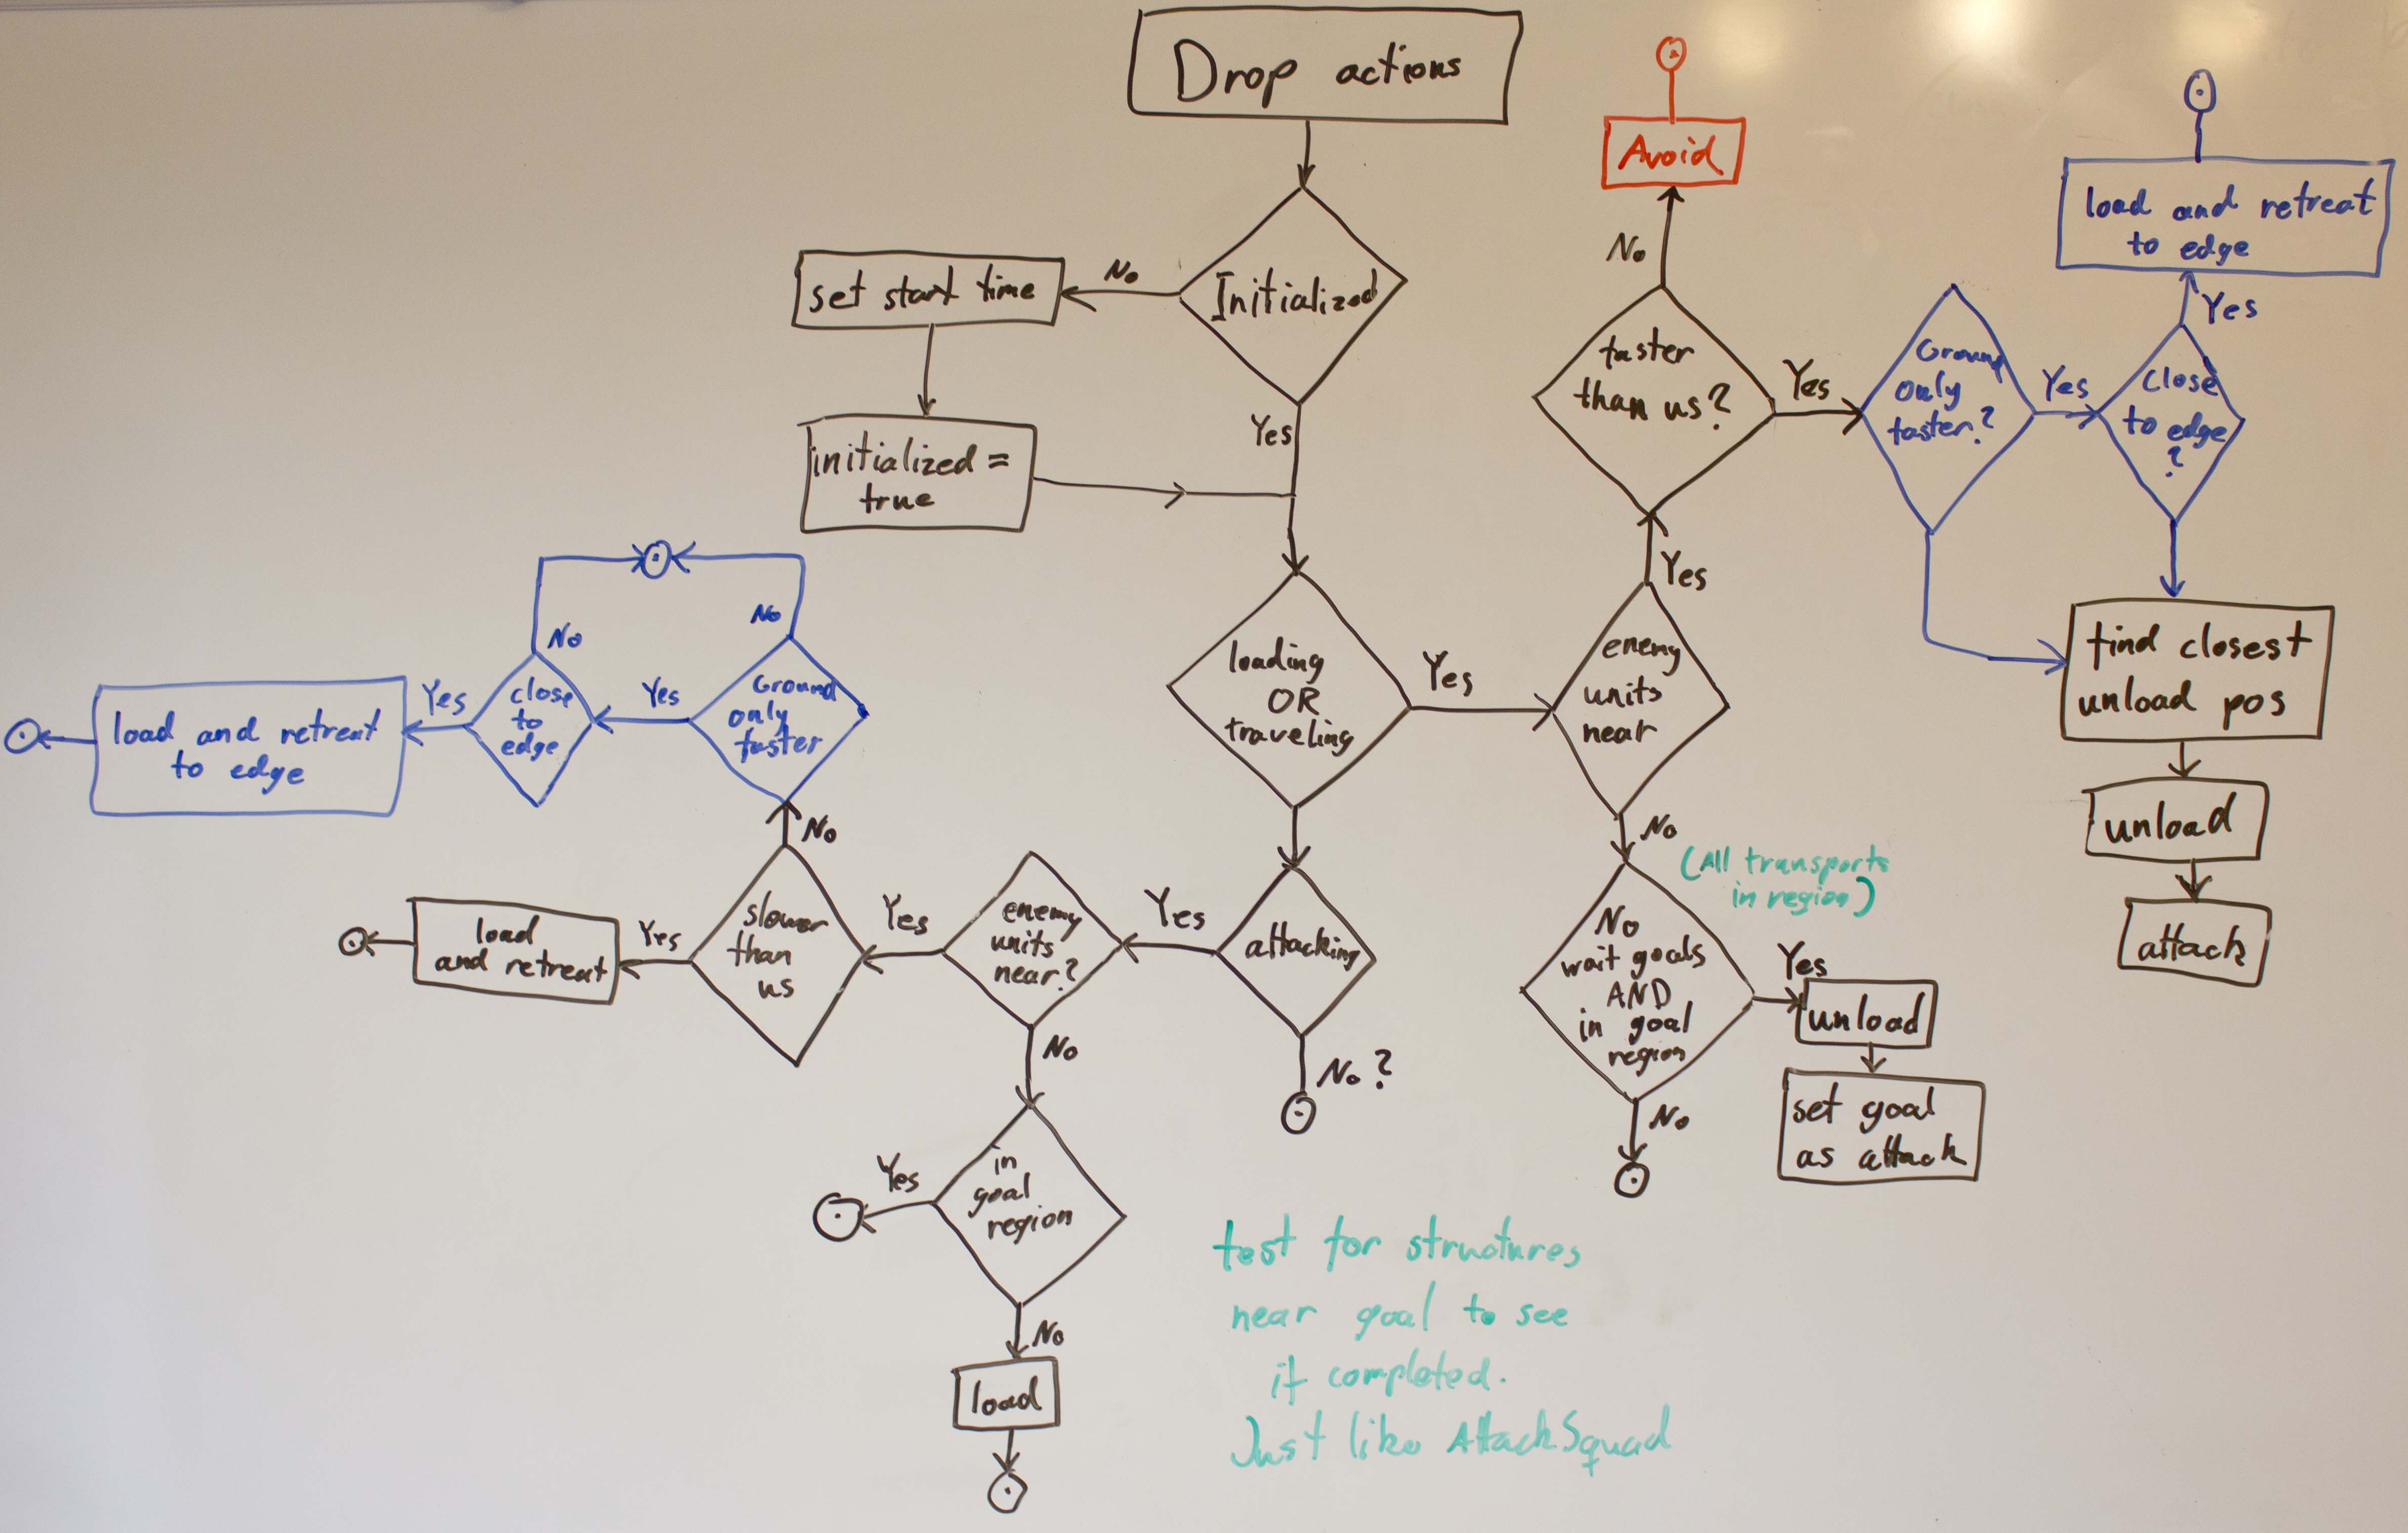 Drop actions
Initialized
No
set start time
initialized =
true
Yes
loading
OR
traveling
Yes
enemy
units
near
Yes
faster
than us?
No
Avoid
Yes
Ground
only
faster?
Yes
close
to edge
?
Yes
load and retreat
to edge
find closest
unload pos
unload
attack
No
(All transports
in region)
No
wait goals
AND
in goal
region
Yes
unload
set goal
as attack
No
attacking
No?
Yes
enemy
units
near?
Yes
slower
than
us
Yes
load
and retreat
No
Ground
only
faster
No
Yes
close
to
edge
No
Yes
load and retreat
to edge
No
in
goal
region
Yes
No
load
test for structures
near goal to see
if completed.
Just like AttackSquad